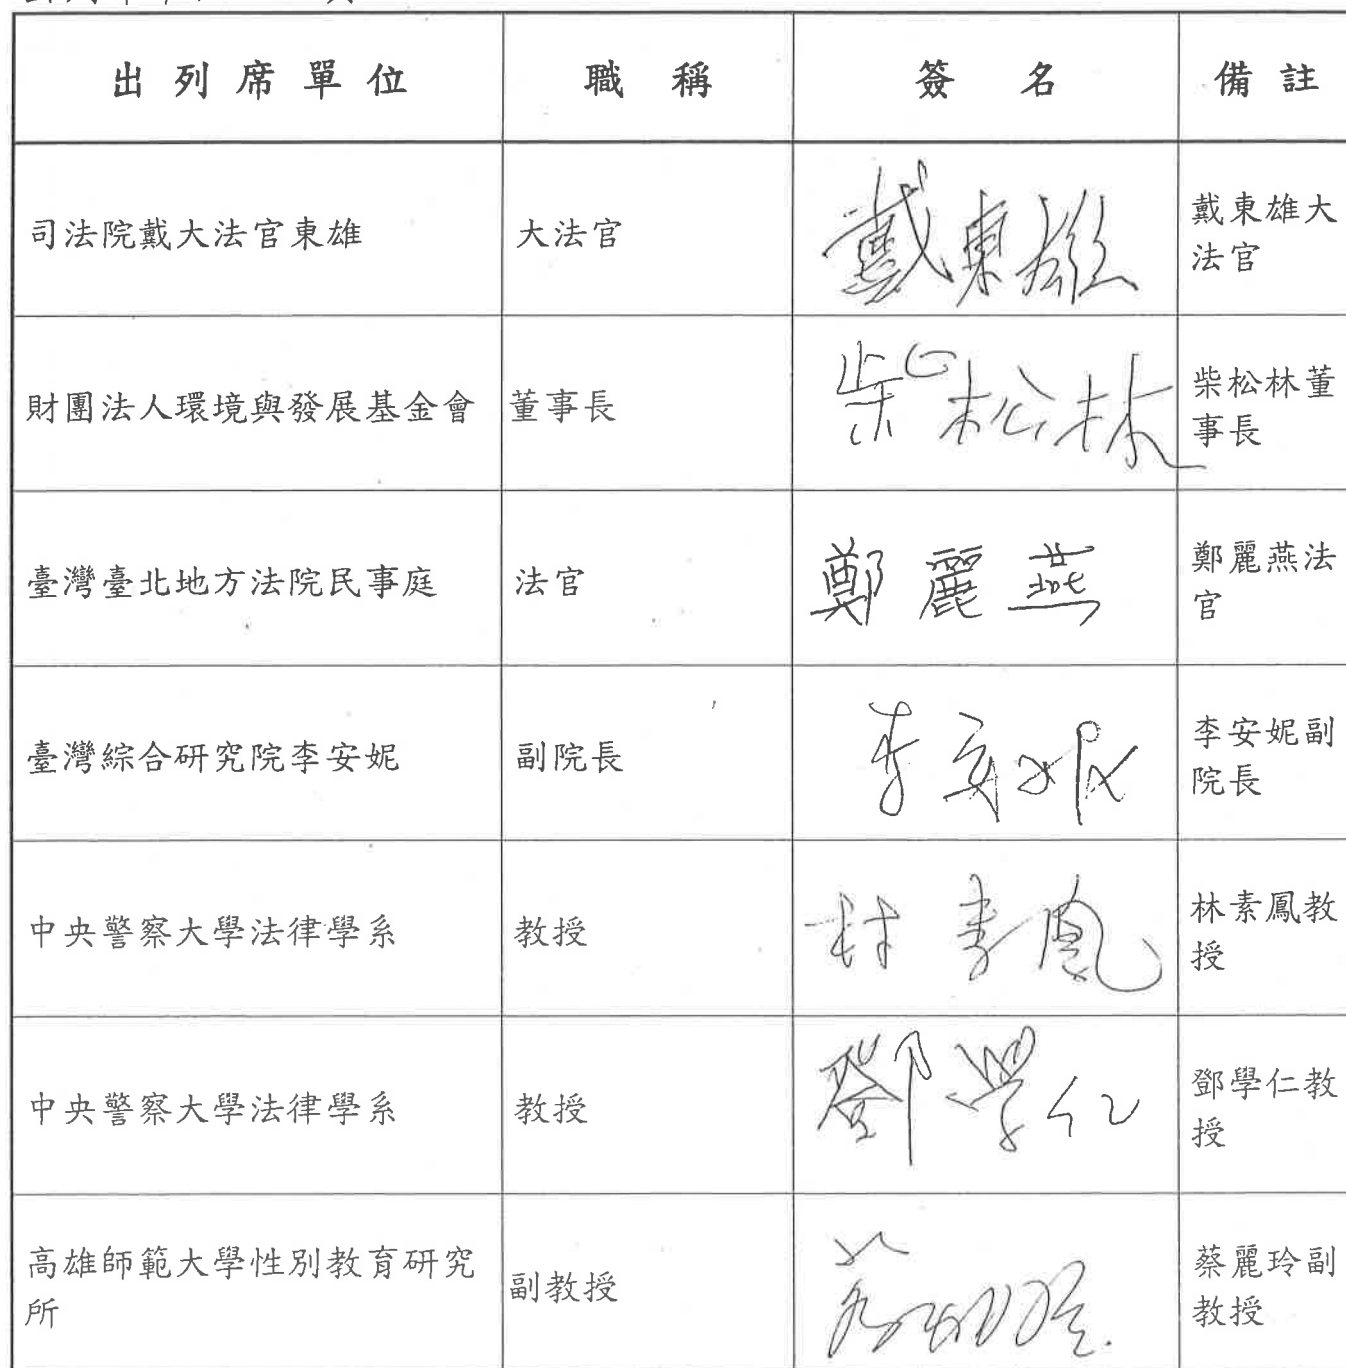 出列席單位 職稱 簽名 備註
司法院戴大法官東雄 大法官 戴東雄 戴東雄大
法官
財團法人環境與發展基金會 董事長 柴松林 柴松林董
事長
臺灣臺北地方法院民事庭 法官 鄭麗燕 鄭麗燕法
官
臺灣綜合研究院李安妮 副院長 李安妮 李安妮副
院長
中央警察大學法律學系 教授 林素鳳 林素鳳教
授
中央警察大學法律學系 教授 鄧學仁 鄧學仁教
授
高雄師範大學性別教育研究
所 副教授 蔡麗玲 蔡麗玲副
教授